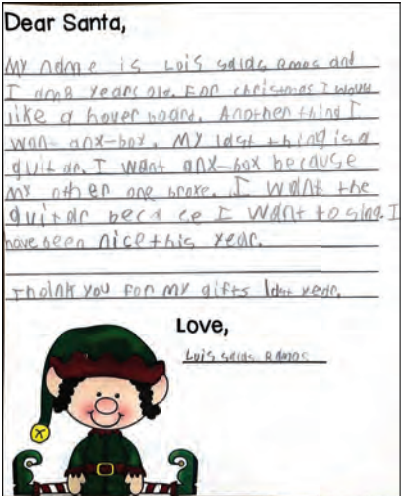 Dear Santa,
My name is Lois salas amos and
I am 8 years old. For christmas I would
like a hover board. Another thing I
wan- anx-box. My last thing is a
guitar. I want anx-box because
my other one broke. I want the
guitar beca ce I want to sing. I
have been nice this year.
Thoink you for my gifts last year.
Love,
Luis salas Ramos